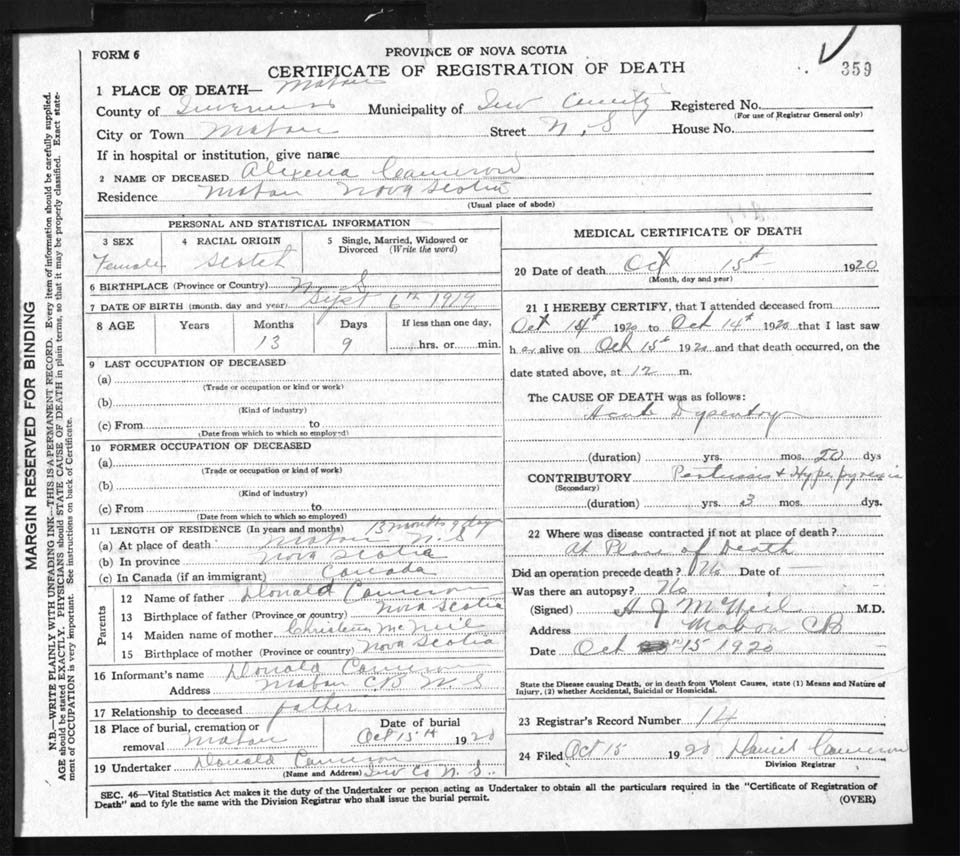 FORM 6
PROVINCE OF NOVA SCOTIA
CERTIFICATE OF REGISTRATION OF DEATH
359
1 PLACE OF DEATH— Mabou
County of Inverness Municipality of Inv County Registered No.
(For use of Registrar General only)
City or Town Mabou Street N.S House No.
If in hospital or institution, give name
2 NAME OF DECEASED Alexena Cameron
Residence Mabou Nova Scotia
(Usual place of abode)
PERSONAL AND STATISTICAL INFORMATION
3 SEX 4 RACIAL ORIGIN 5 Single, Married, Widowed or Divorced (Write the word)
Female Scotch
6 BIRTHPLACE (Province or Country) N. S
7 DATE OF BIRTH (month, day and year) Sept 6th 1919
8 AGE Years Months Days If less than one day,
13 9 hrs. or min.
9 LAST OCCUPATION OF DECEASED
(a)
(Trade or occupation or kind or work)
(b)
(Kind of industry)
(c) From to
(Date from which to which so employed)
10 FORMER OCCUPATION OF DECEASED
(a)
(Trade or occupation or kind of work)
(b)
(Kind of industry)
(c) From to
(Date from which to which so employed)
11 LENGTH OF RESIDENCE (In years and months) 13 months 9 days
(a) At place of death Mabou N.S
(b) In province Nova Scotia
(c) In Canada (if an immigrant) Canada
Parents
12 Name of father Donald Cameron
13 Birthplace of father (Province or country) Nova Scotia
14 Maiden name of mother Christena McNeil
15 Birthplace of mother (Province or country) Nova Scotia
16 Informant's name Donald Cameron
Address Mabou C.B N.S
17 Relationship to deceased father
18 Place of burial, cremation or removal Mabou
Date of burial
Oct 15th 1920
19 Undertaker Donald Cameron
(Name and Address) Inv Co N.S.
MEDICAL CERTIFICATE OF DEATH
20 Date of death Oct 15th 1920
(Month, day and year)
21 I HEREBY CERTIFY, that I attended deceased from
Oct 14th 1920 to Oct 14th 1920 that I last saw
h er alive on Oct 15th 1920 and that death occurred, on the
date stated above, at 12 m.
The CAUSE OF DEATH was as follows:
Acute Dysentery
(duration) yrs. mos. 20 dys
CONTRIBUTORY Pertussis + Hyperpyrexia
(Secondary)
(duration) yrs. 3 mos. dys.
22 Where was disease contracted if not at place of death?
At Place of Death
Did an operation precede death? No Date of
Was there an autopsy? No
(Signed) A J McNeil M.D.
Address Mabou CB
Date Oct 15 1920
State the Disease causing Death, or in death from Violent Causes, state (1) Means and Nature of
Injury, (2) whether Accidental, Suicidal or Homicidal.
23 Registrar's Record Number 14
24 Filed Oct 15 1920 Daniel Cameron
Division Registrar
SEC. 46—Vital Statistics Act makes it the duty of the Undertaker or person acting as Undertaker to obtain all the particulars required in the "Certificate of Registration of
Death" and to fyle the same with the Division Registrar who shall issue the burial permit.
(OVER)
MARGIN RESERVED FOR BINDING
N.B.—WRITE PLAINLY WITH UNFADING INK—THIS IS A PERMANENT RECORD. Every item of information should be carefully supplied.
AGE should be stated EXACTLY. PHYSICIANS should STATE CAUSE OF DEATH in plain terms, so that it may be properly classified. Exact state-
ment of OCCUPATION is very important. See instructions on back of Certificate.